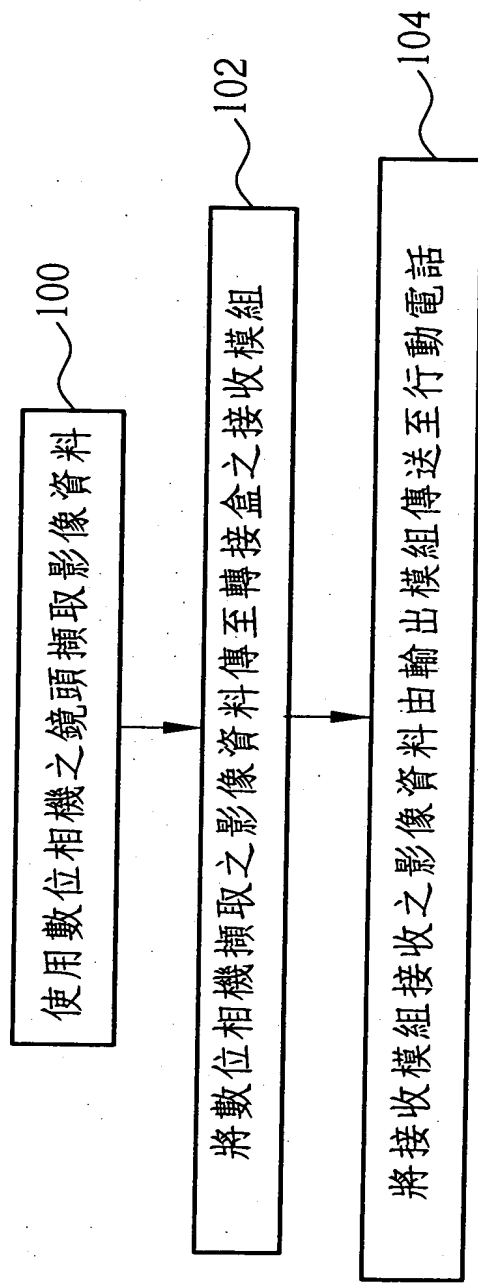 使用數位相機之鏡頭擷取影像資料
100
將數位相機擷取之影像資料傳至轉接盒之接收模組
102
將接收模組接收之影像資料由輸出模組傳送至行動電話
104